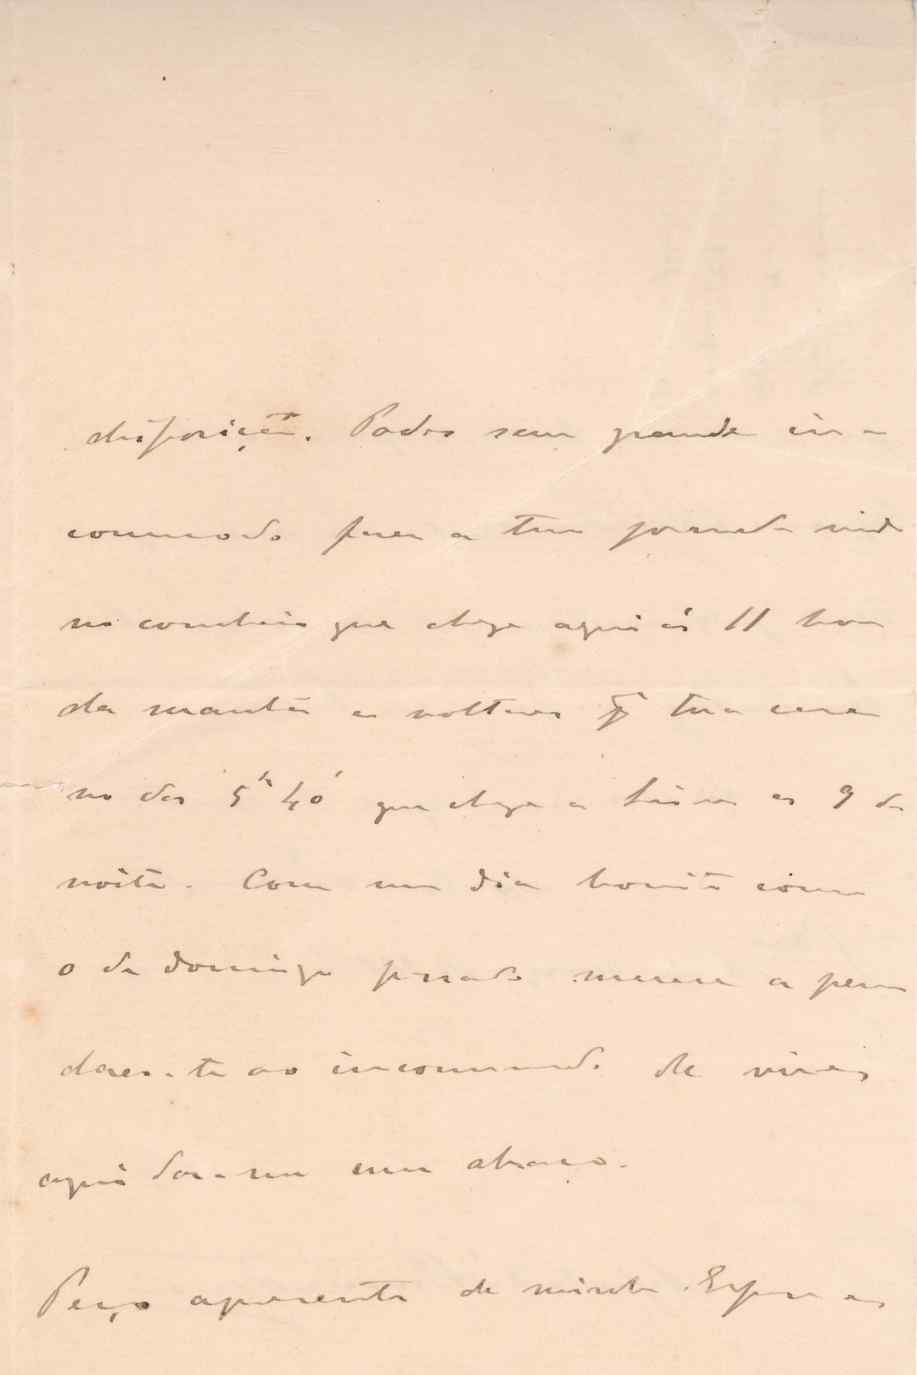 disposição. Podes sem grande in-
commodo fazer a tua jornada vindo
no comboio que chega aqui ás 11 horas
da manhã e voltares pª tua casa
no das 5h 40' que chega a Lisboa as 9 da
noite. Com um dia bonito como
o de domingo passado merece a pena
dares-te ao incommodo de vires
aqui dar-me um abraço.
Peço apresentes de minha Esposa as